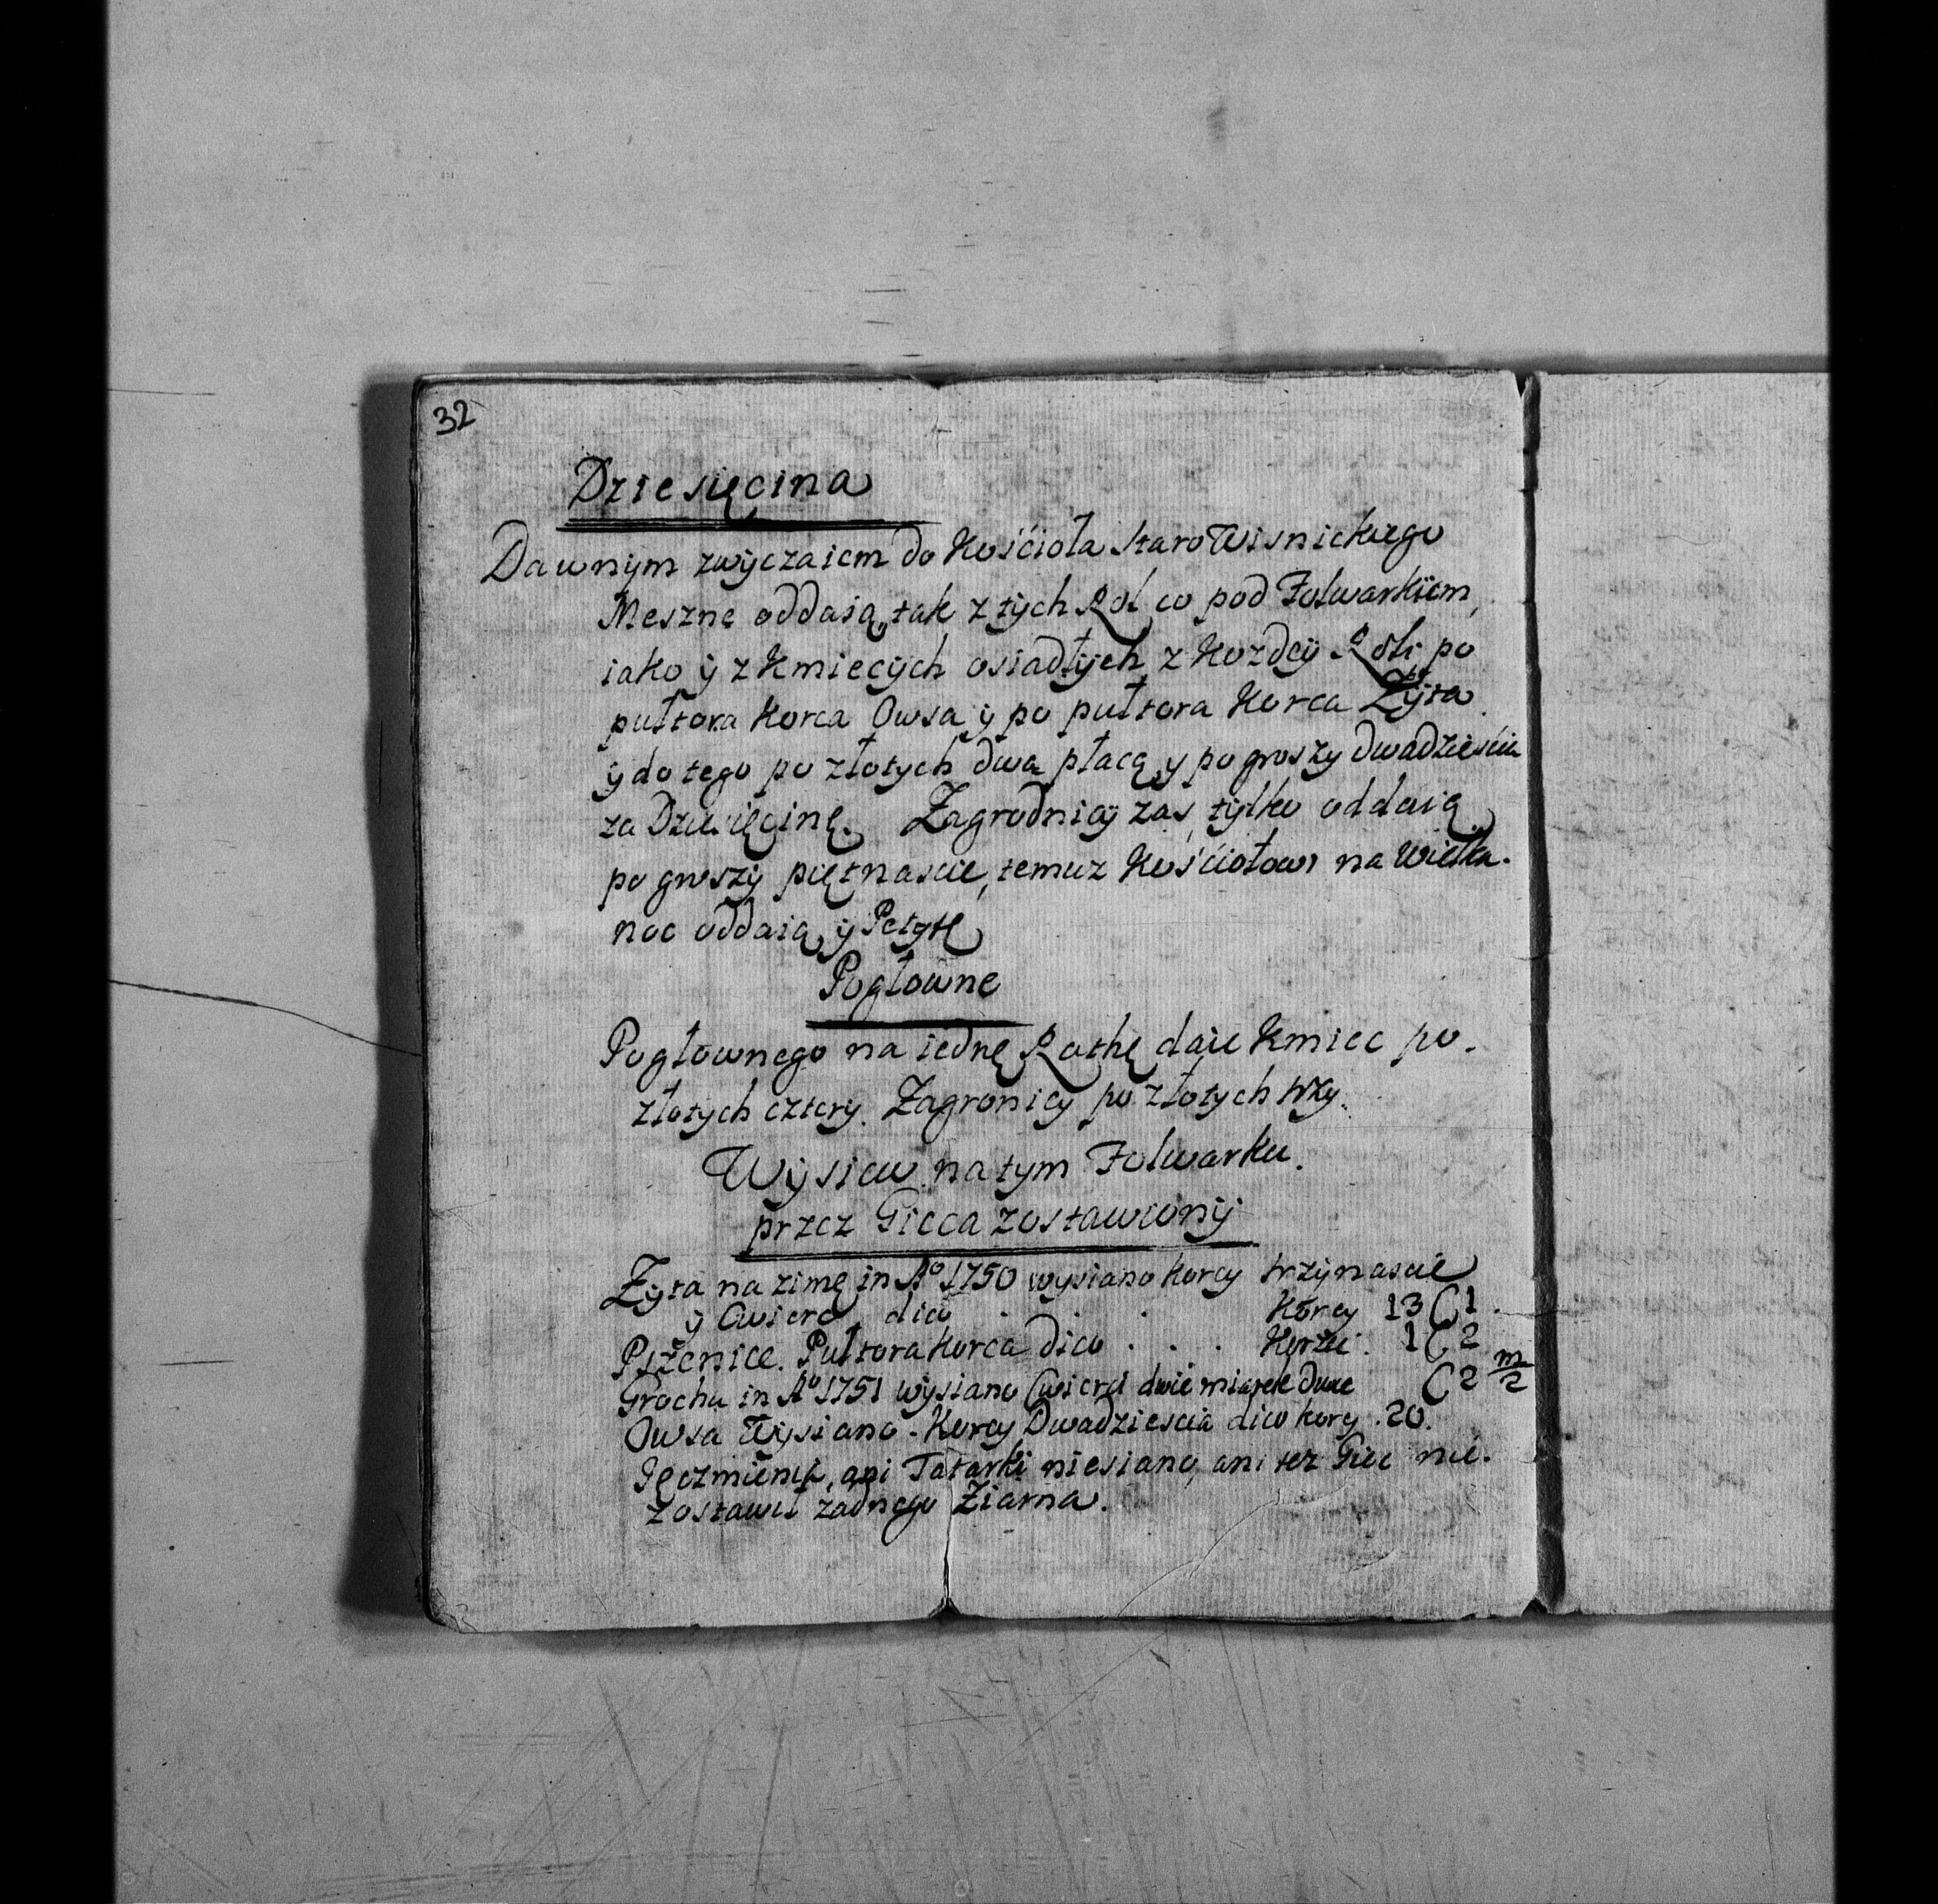 32
Dziesięcina
Dawnym zwyczaiem do Kościoła Staro Wisnickiego
Meszne oddaią, tak z tych Rol co pod Folwarkiem,
iako ÿ z Kmiecÿch osiadłÿch, z Kozdeÿ Roli po
pułtora Korca Owsa ÿ po pułtora Korca Zÿta
ÿ do tego po złotych dwa płacą, y po groszy dwadziescia
za Dziesięcinę. Zagrodnicÿ zas, tÿlko oddaią
po groszÿ piętnascie, temuz Kościołowi na Wielka-
noc oddaią, ÿ Petytę
Pogłowne
Pogłownego na iednę Rathę daie Kmiec po-
złotych cztery. Zagronicy po złotych trzy.
Wÿsiew na tym Folwarku.
przez Giecca zostawionÿ
Zyta na zimę in Aº 1750 wysiano Korcy trzÿnascie
ÿ Cwierc dico . . . Korcy 13 C1.
Pszenice. Pułtora Korca dico . . . Korzec. 1 C2
Grochu in Aº 1751 wysiano Cwierci dwie miarek dwie C2 m/2
Owsa Wysiano - Korcy Dwadziescia dico korcy . 20.
Jęczmienia, ani Tatarki niesiano, ani tez Giec nie-
zostawił zadnego Ziarna.